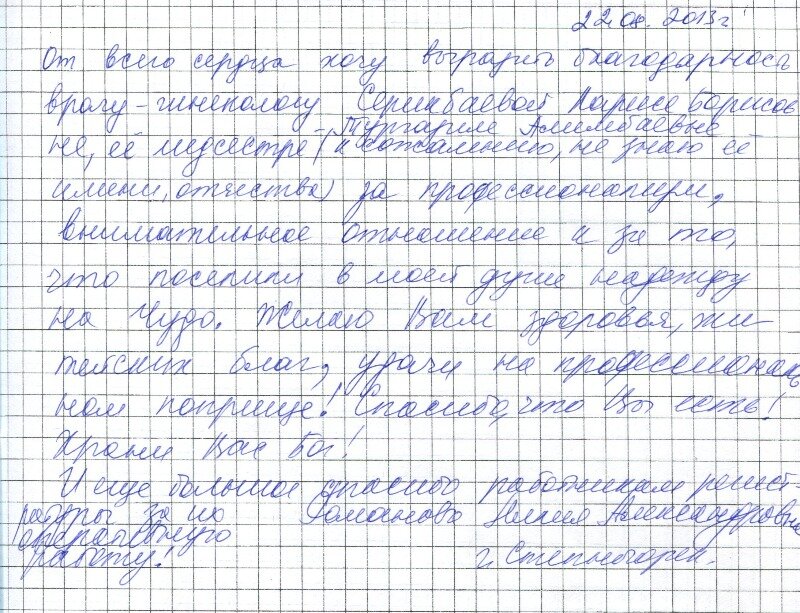 22.08.2013 г
От всего сердца хочу выразить благодарность
врачу-гинекологу Серикбаевой Ларисе Борисов
Алимбаевне
не, её медсестре (к сожалению, не знаю её
имени, отчества) за профессионализм,
внимательное отношение и за то,
что поселили в моей душе надежду
на Чудо. Желаю Вам здоровья, жи
тейских благ, удачи на профессиональ
ном поприще! Спасибо, что Вы есть!
Храни Вас Бог!
И еще большое спасибо работникам регист-
ратуры за их
оперативную
работу!
Романова Александровна
г. Степногорск.